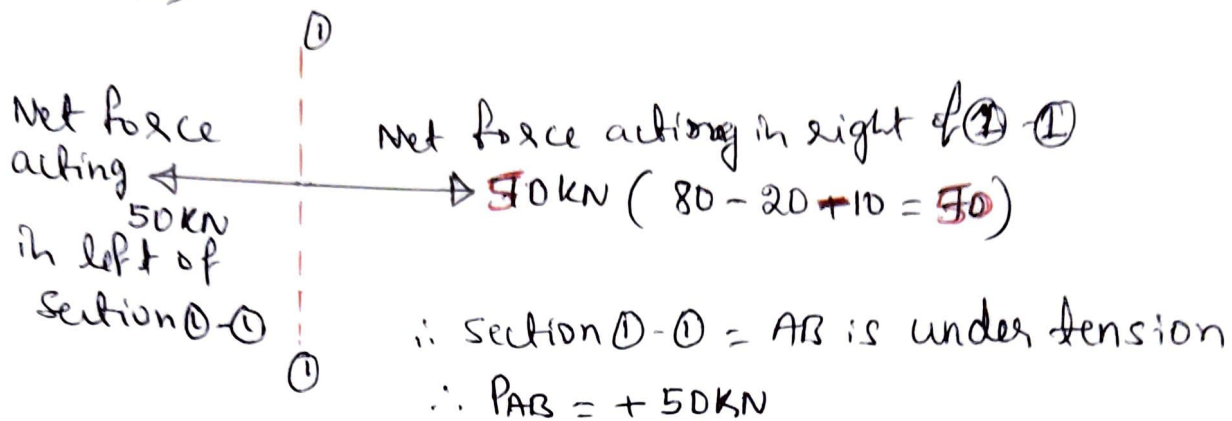 ①
Net force
acting
50KN
in left of
Section ①-①
①
Net force acting in right of ①-①
50KN ( 80 - 20 - 10 = 50)
∴ Section ①-① = AB is under tension
∴ PAB = + 50KN